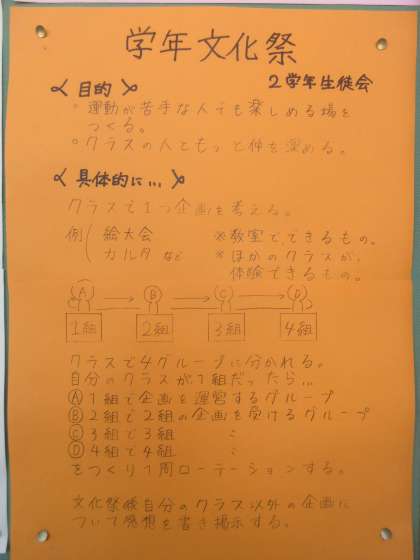 学年文化祭
2学年生徒会
目的
・運動が苦手な人でも楽しめる場を
つくる。
・クラスの人ともっと仲を深める。
具体的に...
クラスで1つ企画を考える。
例( 絵大会 ※教室でできるもの。
カルタ など ※ほかのクラスが、
体験できるもの。
A → B → C → D
1組 2組 3組 4組
クラスで4グループに分かれる。
自分のクラスが1組だったら...
Ⓐ1組で企画を運営するグループ
Ⓑ2組で2組の企画を受けるグループ
Ⓒ3組で3組 〃
Ⓓ4組で4組 〃
をつくり1周ローテーションする。
文化祭後自分のクラス以外の企画に
ついて感想を書き掲示する。